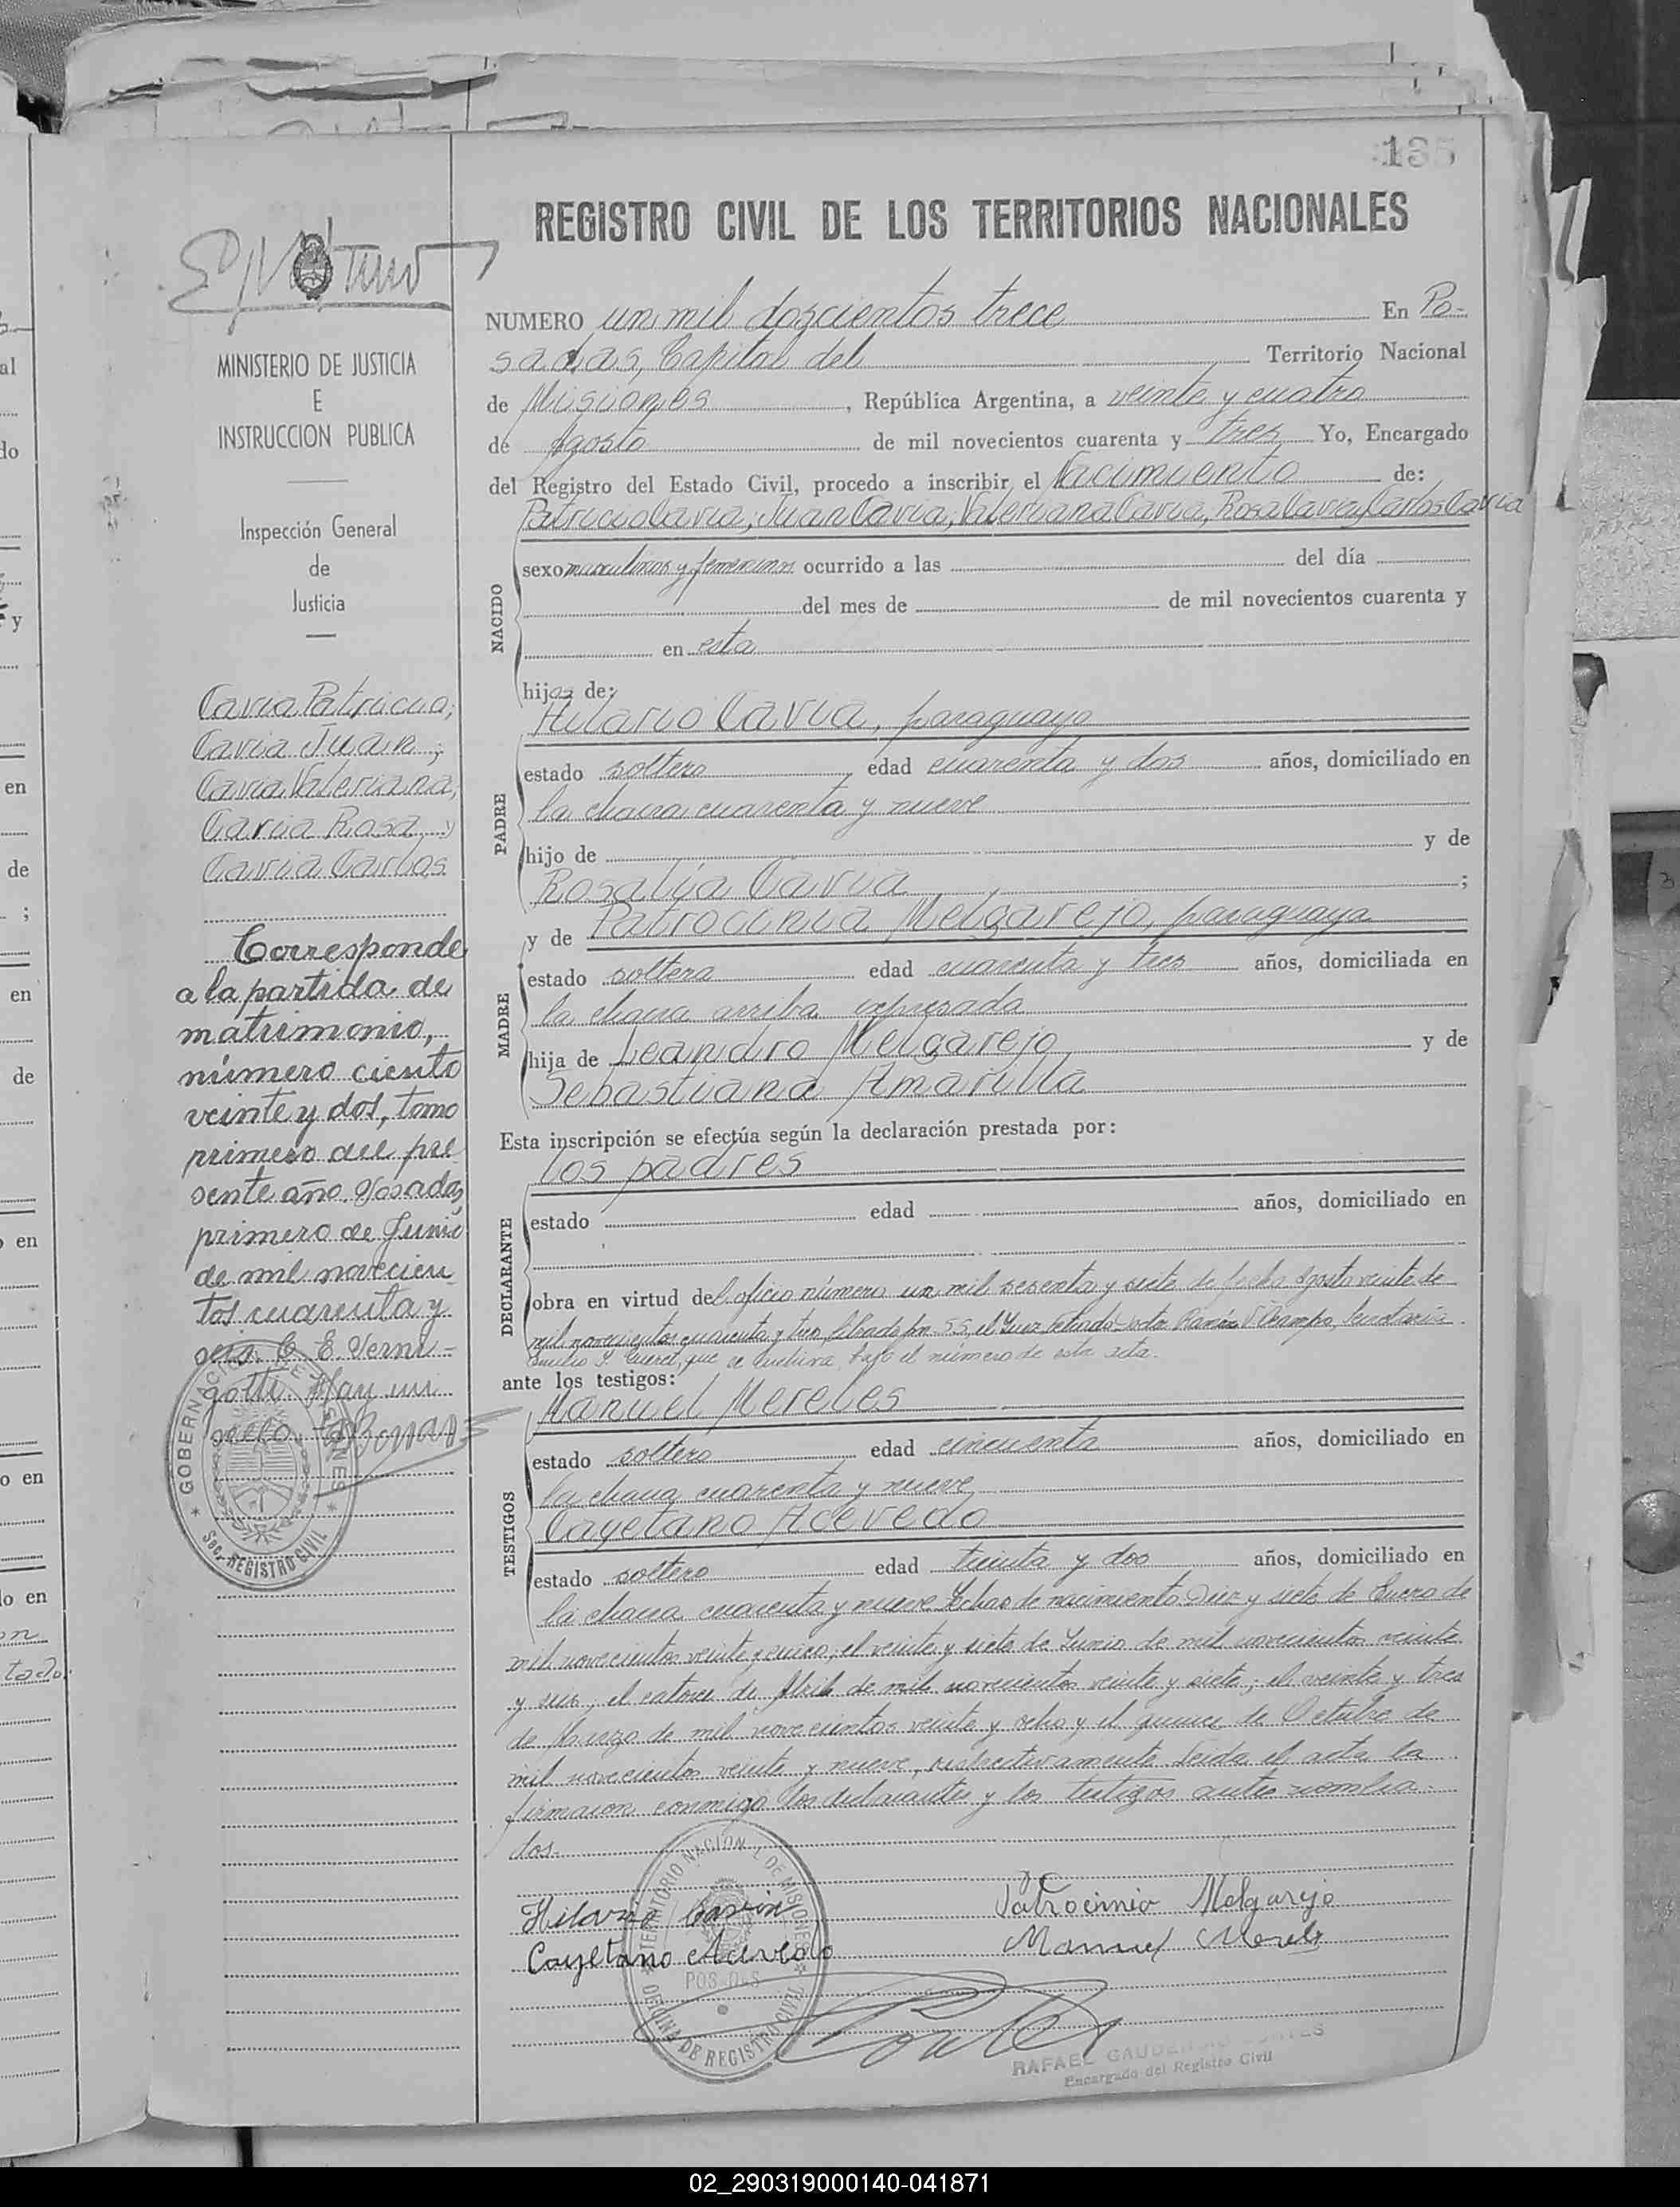 135
REGISTRO CIVIL DE LOS TERRITORIOS NACIONALES
MINISTERIO DE JUSTICIA
E
INSTRUCCION PUBLICA
Inspección General
de
Justicia
Cavia Patricio;
Cavia Juan;
Cavia Valeriana;
Cavia Rosa y
Cavia Carlos
Corresponde
a la partida de
matrimonio,
número ciento
veinte y dos, tomo
primero del pre
sente año. Posadas
primero de Junio
de mil novecien
tos cuarenta y
seis. E. Verni-
gotti. Hay un
sello.
GOBERNACION DE MISIONES
Sec. REGISTRO CIVIL
NUMERO un mil doscientos trece En Po-
sadas, Capital del Territorio Nacional
de Misiones, República Argentina, a veinte y cuatro
de Agosto de mil novecientos cuarenta y tres Yo, Encargado
del Registro del Estado Civil, procedo a inscribir el Nacimiento de:
Patricio Cavia, Juan Cavia, Valeriana Cavia, Rosa Cavia y Carlos Cavia
NACIDO
sexo masculinos y femeninos ocurrido a las del día
del mes de de mil novecientos cuarenta y
en esta
hijos de:
PADRE
Hilario Cavia, paraguayo
estado soltero edad cuarenta y dos años, domiciliado en
la chacra cuarenta y nueve
hijo de y de
Rosalía Cavia ;
MADRE
y de Patrocinia Melgarejo, paraguaya
estado soltera edad cuarenta y tres años, domiciliada en
la chacra arriba expresada
hija de Leandro Melgarejo y de
Sebastiana Amarilla
Esta inscripción se efectúa según la declaración prestada por:
los padres
DECLARANTE
estado edad años, domiciliado en
obra en virtud del oficio número un mil sesenta y siete de fecha Agosto veinte de
mil novecientos cuarenta y tres, librado por S.S. el Juez Letrado Doctor Ramón V. Ocampo, Secretaría
Emilio que se archiva bajo el número de esta acta.
ante los testigos:
TESTIGOS
Manuel Mereles
estado soltero edad cincuenta años, domiciliado en
la chacra cuarenta y nueve
Cayetano Acevedo
estado soltero edad treinta y dos años, domiciliado en
la chacra cuarenta y nueve. Fechas de nacimiento: Diez y siete de Enero de
mil novecientos veinte y cinco; el veinte y siete de Junio de mil novecientos veinte
y seis, el catorce de Abril de mil novecientos veinte y siete; el veinte y tres
de Marzo de mil novecientos veinte y ocho y el quince de Octubre de
mil novecientos veinte y nueve, respectivamente. Leida el acta la
firmaron conmigo los declarantes y los testigos antes nombra-
dos.
Hilario Cavia Patrocinio Melgarejo
Cayetano Acevedo Manuel Mereles
TERRITORIO NACIONAL DE MISIONES
OFICINA DE REGISTRO CIVIL
POSADAS
RAFAEL GAUDENCIO CORTES
Encargado del Registro Civil
02_290319000140-041871